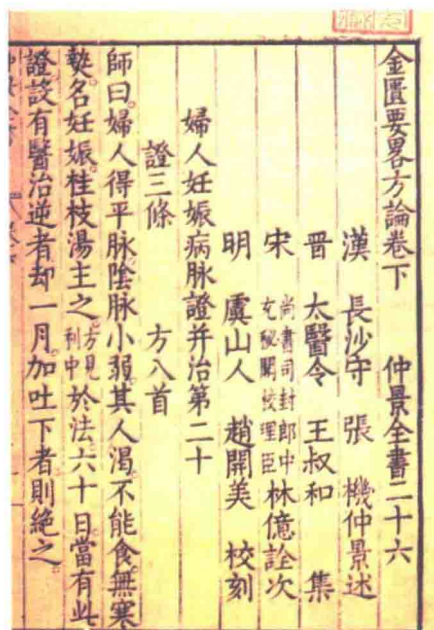 金匱要畧方論卷下　仲景全書二十六
漢　長沙守　張　機仲景述
晉　太醫令　王叔和　集
宋　尚書司封郎中充秘閣校理臣林億詮次
明　虞山人　趙開美　校刻
婦人妊娠病脉證并治第二十
證三條　方八首
師曰。婦人得平脉。陰脉小弱。其人渴。不能食。無寒
熱。名妊娠。桂枝湯主之。方見利中於法六十日當有此
證。設有醫治逆者。却一月。加吐下者。則絶之。